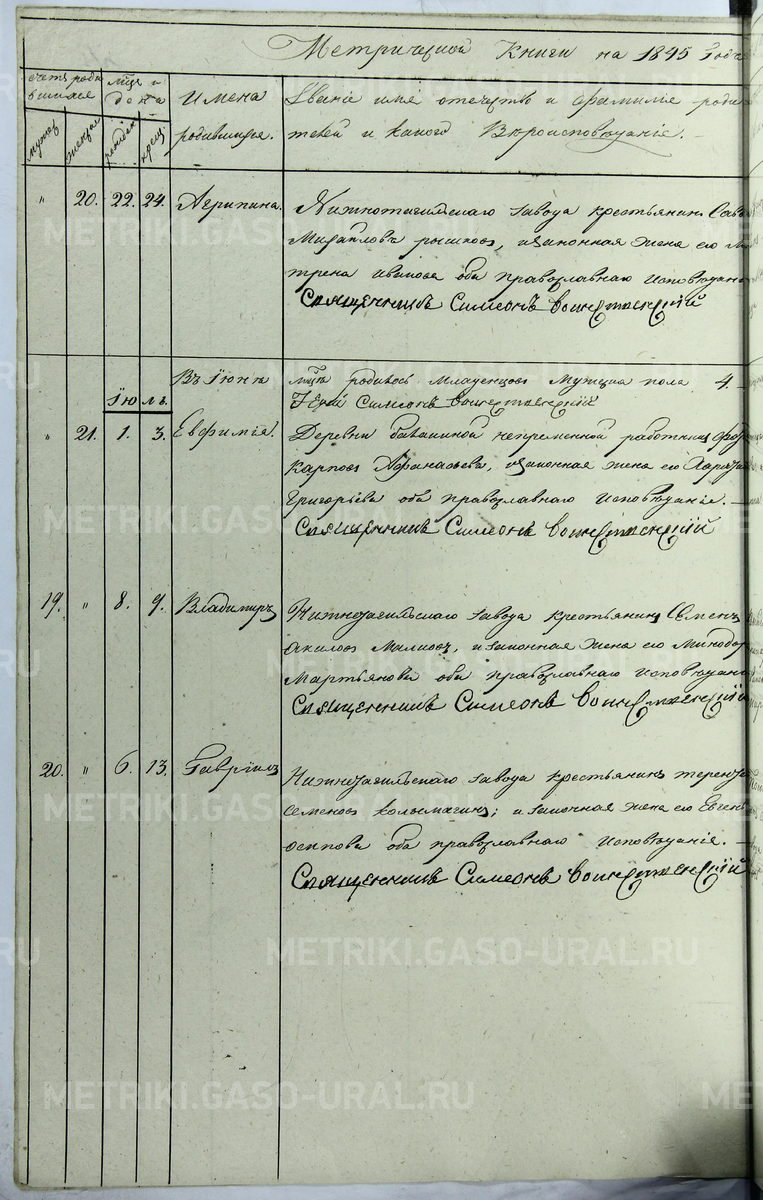 Метрической Книги на 1845 Годъ
счетъ роди
вшихся
мѣц и
дена
Имена
родившихся.
Званіе имя отечество и фамилія роди
телей и какого Вѣроисповѣданія.
мужес
женска
рожден
крещ
" 20. 22. 24. Агрипина. Нижнотагилскаго завода крестьянин Сав
Михайловъ рышков, изаконная жена его Ма
трена иванова оба православнаго исповѣдан
Священникъ Симеонъ Воинственскій
Въ Іюнѣ мѣцѣ родилось Младенцовъ Мужска пола 4.
Іерей Симеонъ Воинственскій
Іюль.
" 21. 1. 3. Евфимія. Деревни непременной работник Фо
Карпов Афанасьева, изаконная жена его Хар
Григорьева оба православнаго исповѣданіе.
Священникъ Симеонъ Воинственскій
19. " 8. 9. Владимиръ Нижнетагильскаго завода крестьянин Семенъ
Акилов Маликов, изаконная жена его Минодор
Мартьянова оба православнаго исповѣдан
Священникъ Симеонъ Воинственскій
20. " 6. 13. Гавриилъ Нижнетагильскаго завода крестьянинъ терен
семенов колмагин; изаконная жена его Евген
осипова оба православнаго исповѣданіе.
Священникъ Симеонъ Воинственскій
METRIKI.GASO-URAL.RU